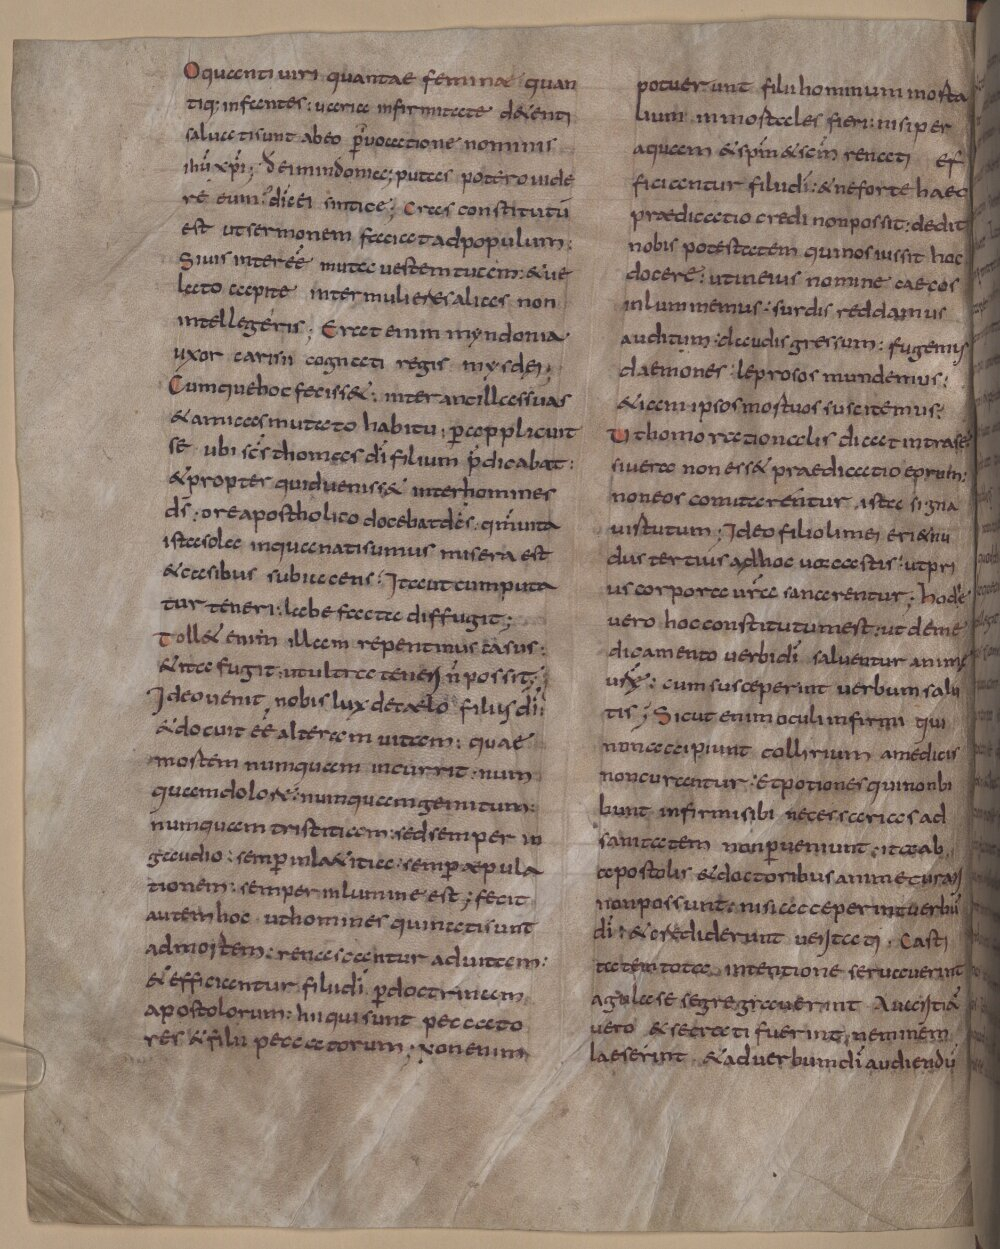 O quanti viri quantae feminae quan
tiq; infantes: varia infirmitate detenti
salvati sunt ab eo p̄ vocatione nominis
ihū xp̄i; dei mindomia; putas potero vide
re eum: dicei sintice; Cras constitutū
est ut sermonem faciat ad populum:
Si vis interēē muta vestem tuam: & ve
lato capite inter mulieres alias non
intellegeris; Erat enim myndonia
uxor carisii cognati regis mysdei;
Cumque hoc fecisset: inter ancillas suas
& amicas mutato habitu: p̄ applicuit
se ubi sc̄s thomas dī filium p̄dicabat:
& propter quid venisset inter homines
dī: ore apostholico docebat dēs. qm̄ vita
ista sola in qua nati sumus misera est
& casibus subiacens: Ita ut cum puta
tur teneri: labefacta diffugit;
Toll& enim illam repentinus casus:
& ita fugit: ut ultra teneri n̄ possit;
Ideo venit nobis lux de caelo filius dī:
& docuit ēē alteram vitam: quae
mortem numquam incurrit: num
quam dolo&: numquam gemitum:
numquam tristitiam: sed semper in
gaudio: semp̄ in laetitia: semp̄ aepula
tionem: semper in lumine est; fecit
autem hoc ut homines qui nati sunt
ad mortem: renascantur ad vitam:
& efficiantur filii dī p̄ doctrinam
apostolorum: hii qui sunt peccato
res & filii peccatorum; Non enim
potuerunt filii hominum morta
lium inmortales fieri: nisi per
aquam & sp̄m & sc̄m renati ef
ficiantur filii dī: & ne forte haec
praedicatio credi non possit: dedit
nobis potestatem qui nos iussit hoc
docere: ut in eius nomine caecos
inluminemus: surdis reddamus
auditum: claudis gressum: fugemus
daemones: leprosos mundemus:
& iam ipsos mortuos suscitemus:
Ut homo rationalis dicat intra se
si vera non esset praedicatio eorum:
non eos comitarentur ista signa
virtutum; Ideo filioli mei eri&nu
dus tertius ad hoc vocastis: ut pri
us corpora vr̄a sanarentur; hodie
vero hoc constitutum est: ut de me
dicamento verbi dī salventur anime
vr̄ę: cum susceperint verbum salu
tis; Sicut enim oculi infirmi qui
non accipiunt collirium a medicis
non curantur: Et potiones qui non bi
bunt infirmi sibi necessarias ad
sanitatem non p̄veniunt: ita ab
apostolis & doctoribus anime curari
non possunt: nisi acceperint verbū
dī: & crediderunt veritati. Casti
tatem tota intentione servaverint
a gula se segregaverint Avaritiā
vero & secreti fuerint neminem
laeserint & ad verbum dī audiendū